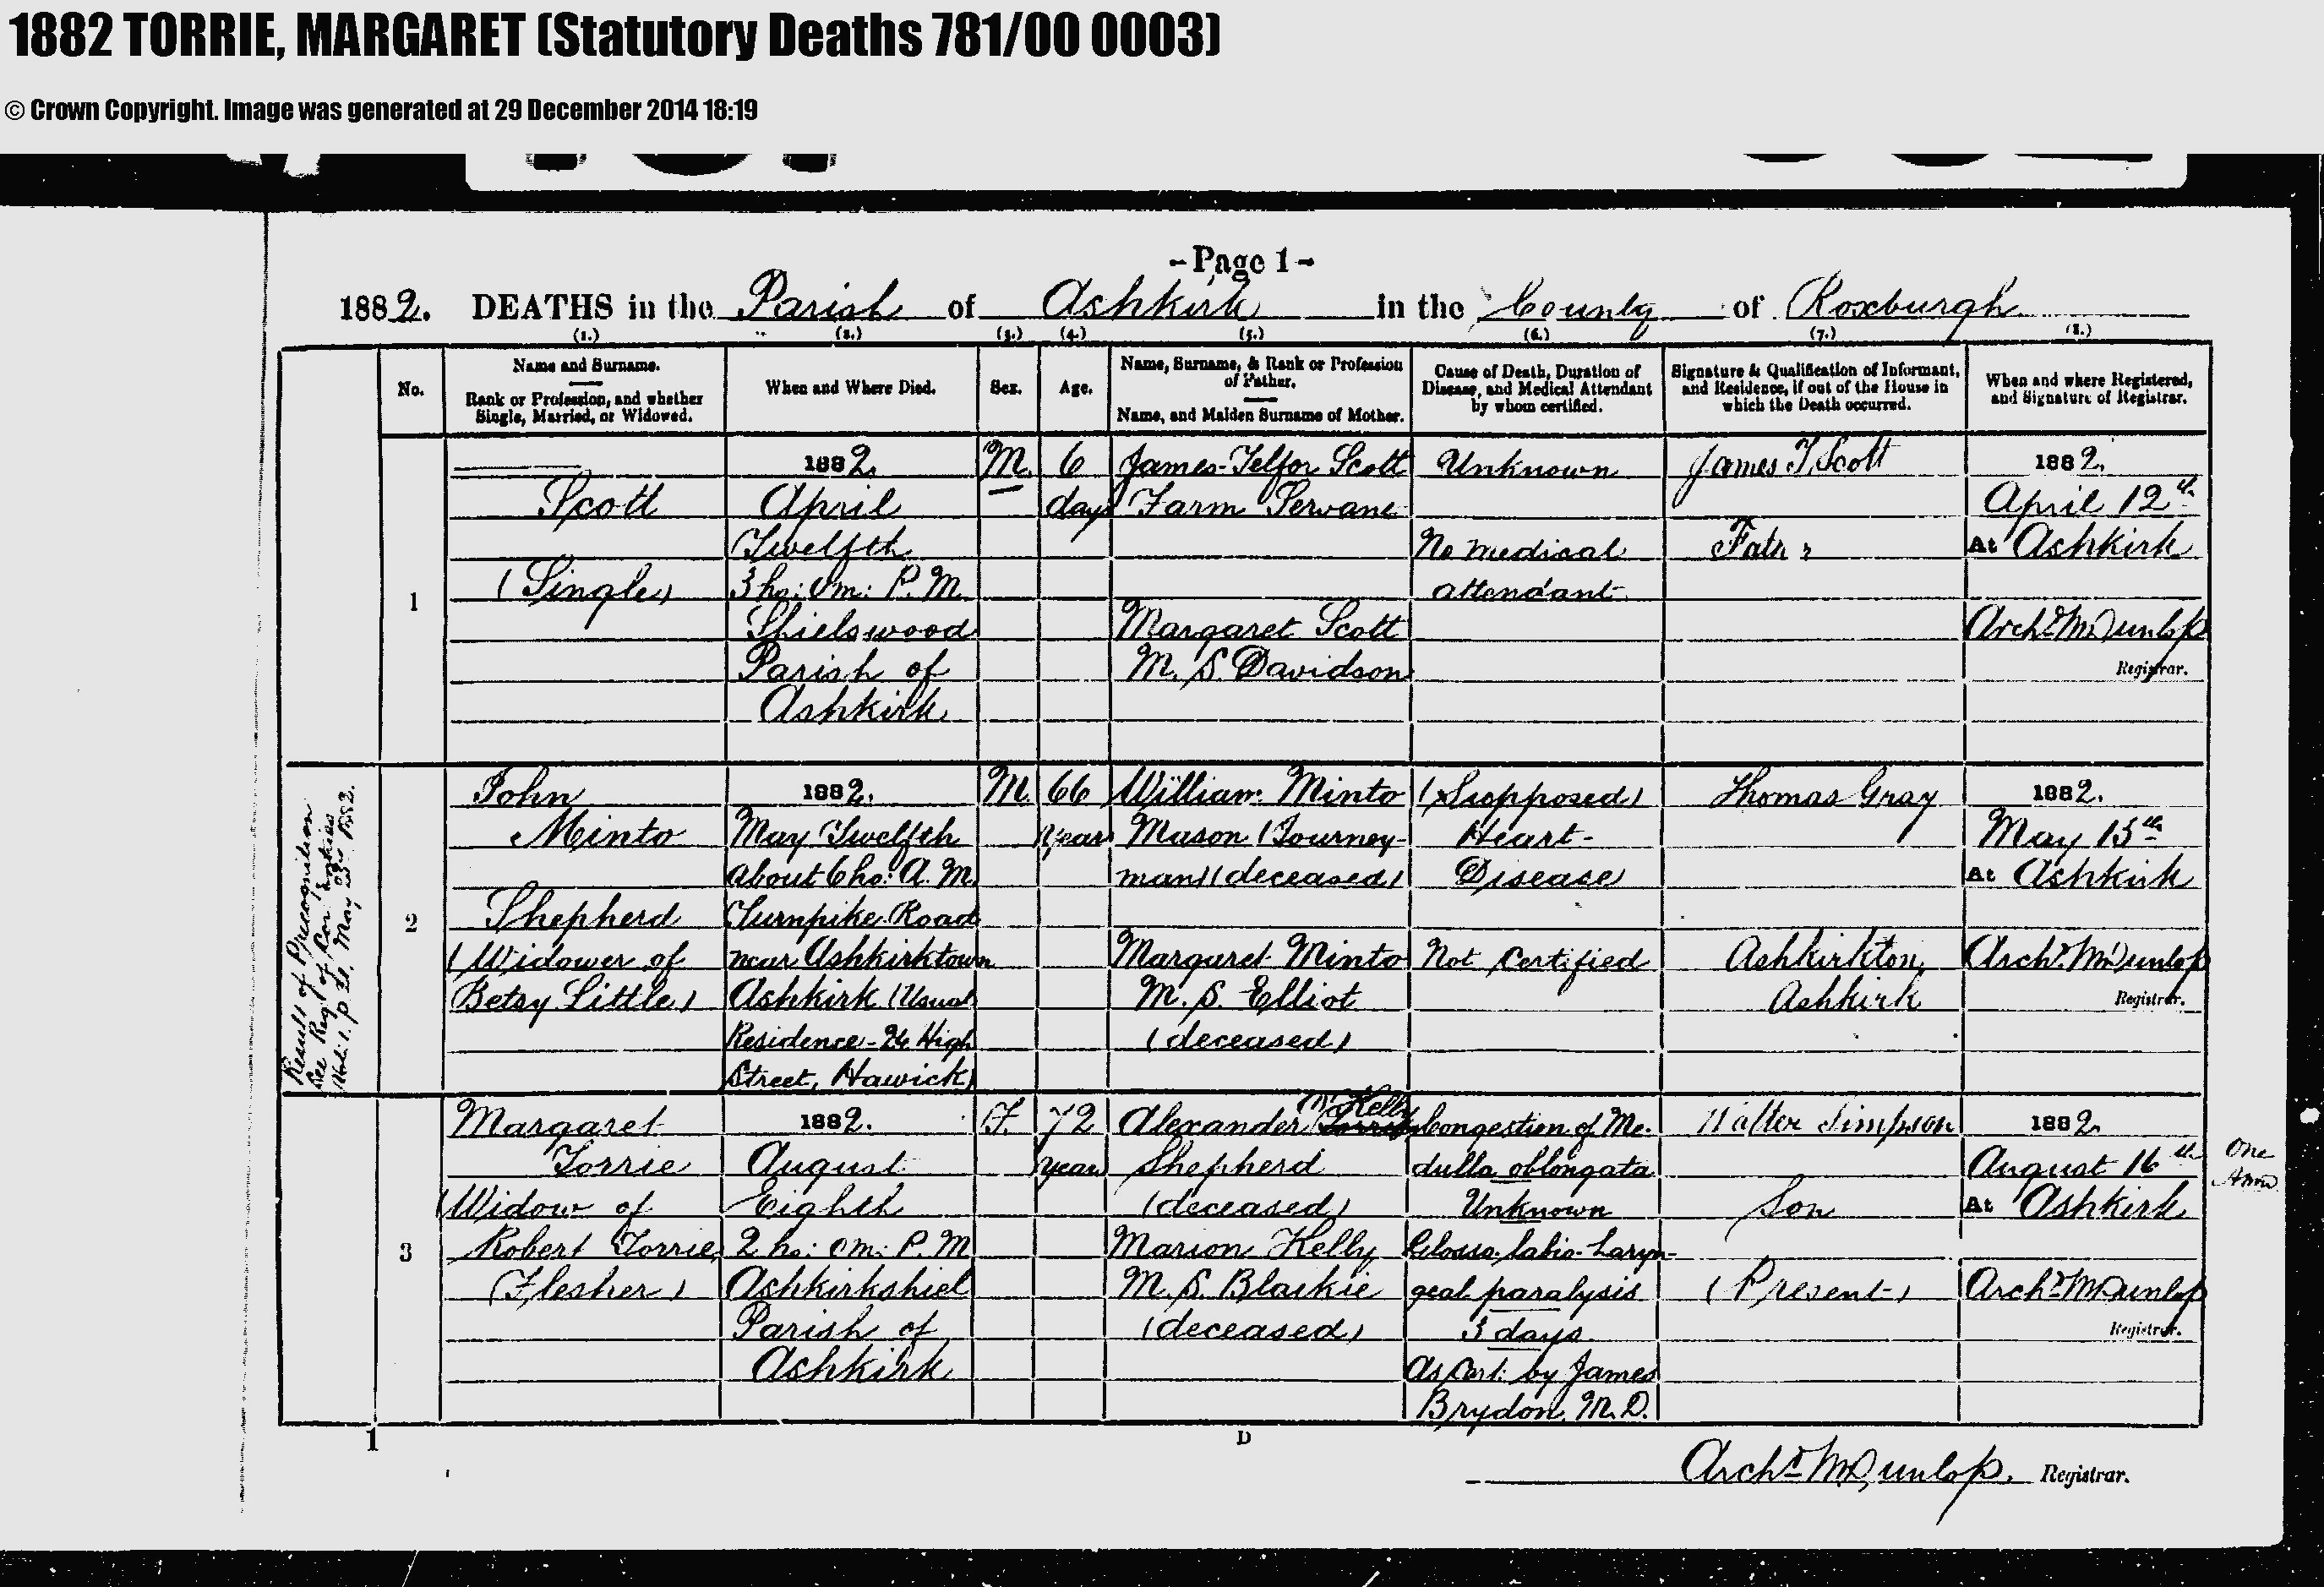 1882 TORRIE, MARGARET (Statutory Deaths 781/00 0003)
© Crown Copyright. Image was generated at 29 December 2014 18:19
- Page 1 -
1882. DEATHS in the Parish of Ashkirk in the County of Roxburgh
(1.) (2.) (3.) (4.) (5.) (6.) (7.) (8.)
No.
Name and Surname.
Rank or Profession, and whether
Single, Married, or Widowed.
When and Where Died.
Sex.
Age.
Name, Surname, & Rank or Profession
of Father.
Name, and Maiden Surname of Mother.
Cause of Death, Duration of
Disease, and Medical Attendant
by whom certified.
Signature & Qualification of Informant,
and Residence, if out of the House in
which the Death occurred.
When and where Registered,
and Signature of Registrar.
1
Scott
(Single)
1882.
April
Twelfth
3 ho: 0m: P.M.
Shielswood
Parish of
Ashkirk
M.
6
days
James Telfor Scott
Farm Servant
Margaret Scott
M.S. Davidson
Unknown
No medical
attendant
James T Scott
Father
1882.
April 12th
At Ashkirk
Archd. McDunlop
Registrar.
Result of Precognition
See Reg. of Cor. Entries
Vol: 1. p. May 1882.
2
John
Minto
Shepherd
(Widower of
Betsy Little)
1882.
May Twelfth
about 6 ho: A.M.
Turnpike Road
near Ashkirktown
Ashkirk (Usual
Residence - 24 High
Street, Hawick)
M.
66
years
William Minto
Mason (Journey-
man) (deceased)
Margaret Minto
M.S. Elliot
(deceased)
(Supposed)
Heart-
Disease
Not Certified
Thomas Gray
Ashkirkton,
Ashkirk
1882.
May 15th
At Ashkirk
Archd. McDunlop
Registrar.
3
Margaret
Torrie
(Widow of
Robert Torrie,
(Flesher)
1882.
August
Eighth
2 ho: 0m: P.M
Ashkirkshiel
Parish of
Ashkirk
F.
72
years
Kelly
Alexander Torrie
Shepherd
(deceased)
Marion Kelly
M.S. Blackie
(deceased)
Congestion of Me-
dulla oblongata
Unknown
Glosso-labio-Laryn-
geal paralysis
3 days
As Cert: by James
Brydon, M.D.
Walter Simpson
Son
(Present)
1882.
August 16th
At Ashkirk
Archd. McDunlop
Registrar.
One
1
D
Archd. McDunlop. Registrar.